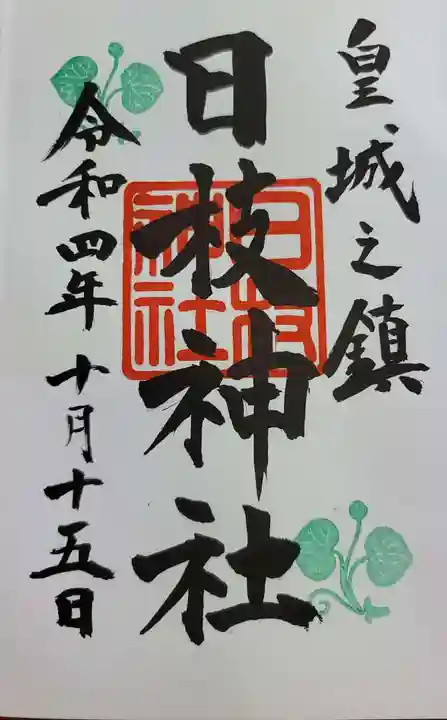 皇城之鎮
日枝神社
日枝神社
令和四年十月十五日